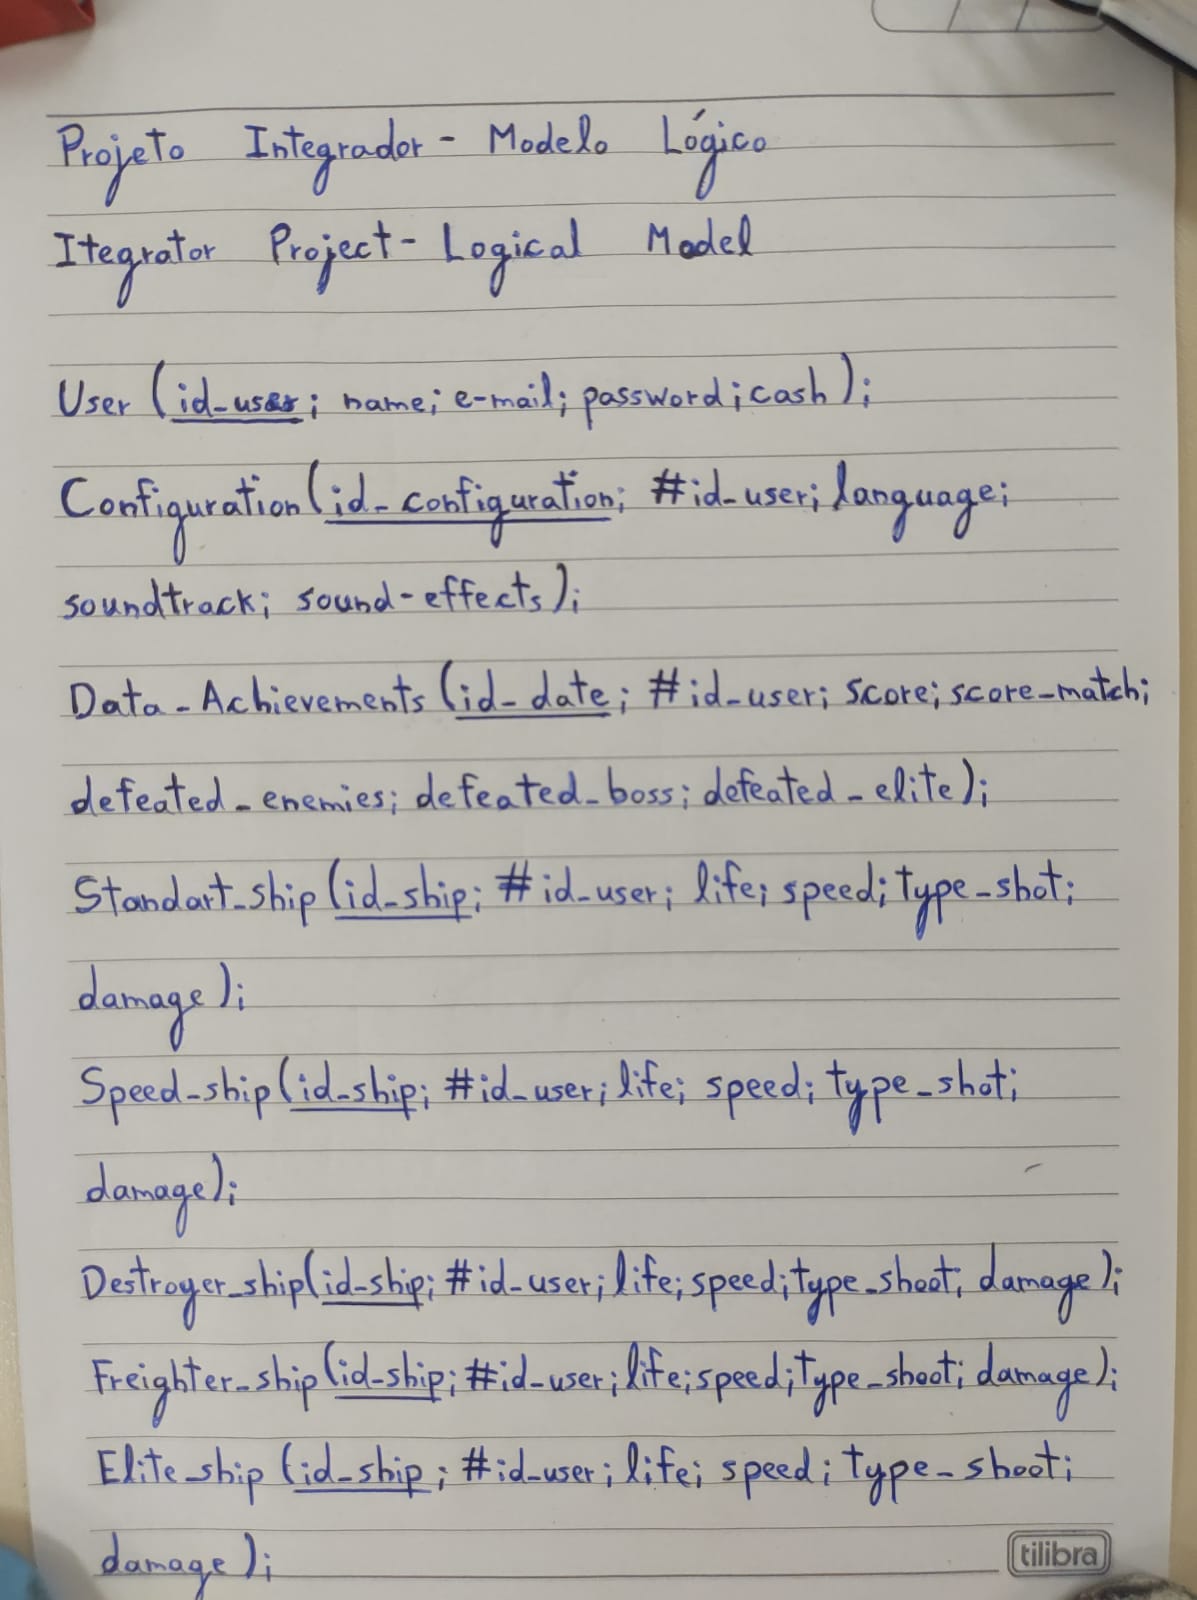 Projeto Integrador - Modelo Lógico
Itegrator Project - Logical Model
User (id_user; name; e-mail; password; cash);
Configuration (id_configuration; #id_user; language;
soundtrack; sound-effects);
Data_Achievements (id_date; #id_user; score; score_match;
defeated_enemies; defeated_boss; defeated_elite);
Standart_ship (id_ship; #id_user; life; speed; type_shot;
damage);
Speed_ship (id_ship; #id_user; life; speed; type_shot;
damage);
Destroyer_ship (id_ship; #id_user; life; speed; type_shoot; damage);
Freighter_ship (id_ship; #id_user; life; speed; type_shoot; damage);
Elite_ship (id_ship; #id_user; life; speed; type_shoot;
damage);
tilibra